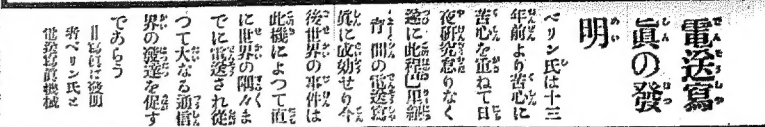 電送寫
眞の發
明
ベリン氏は十三
年前より苦心に
苦心を重ねて日
夜研究怠りなく
遂に此程巴里紐
育間の電送寫
眞に成効せり今
後世界の事件は
此機によつて直
に世界の隅々ま
でに電送され從
つて大なる通信
界の發達を促す
であらう
=寫眞は發明
者ベリン氏と
電送寫眞機械